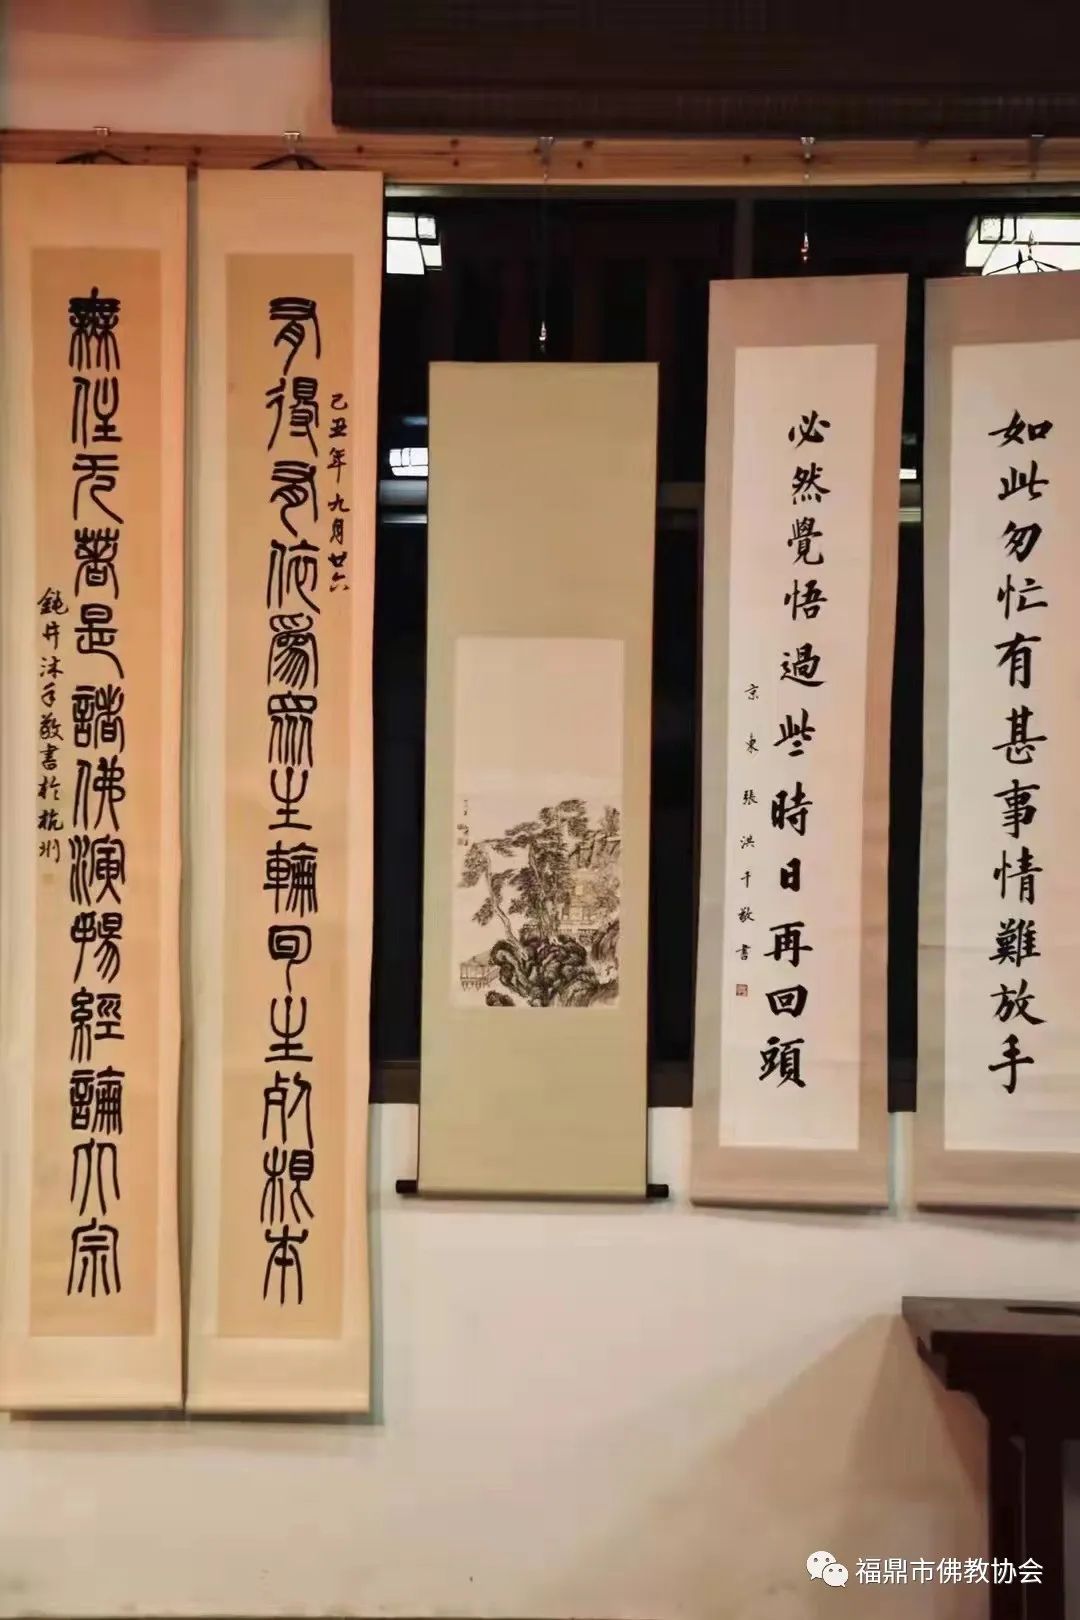 如此匆忙有甚事情難放手
必然覺悟過些時日再回頭
京東張洪千敬書
有得有依為眾生輪回生死根本
己丑年九月廿六
無住無著是諸佛演暢經論大宗
鈍井沐手敬書於杭州
福鼎市佛教协会